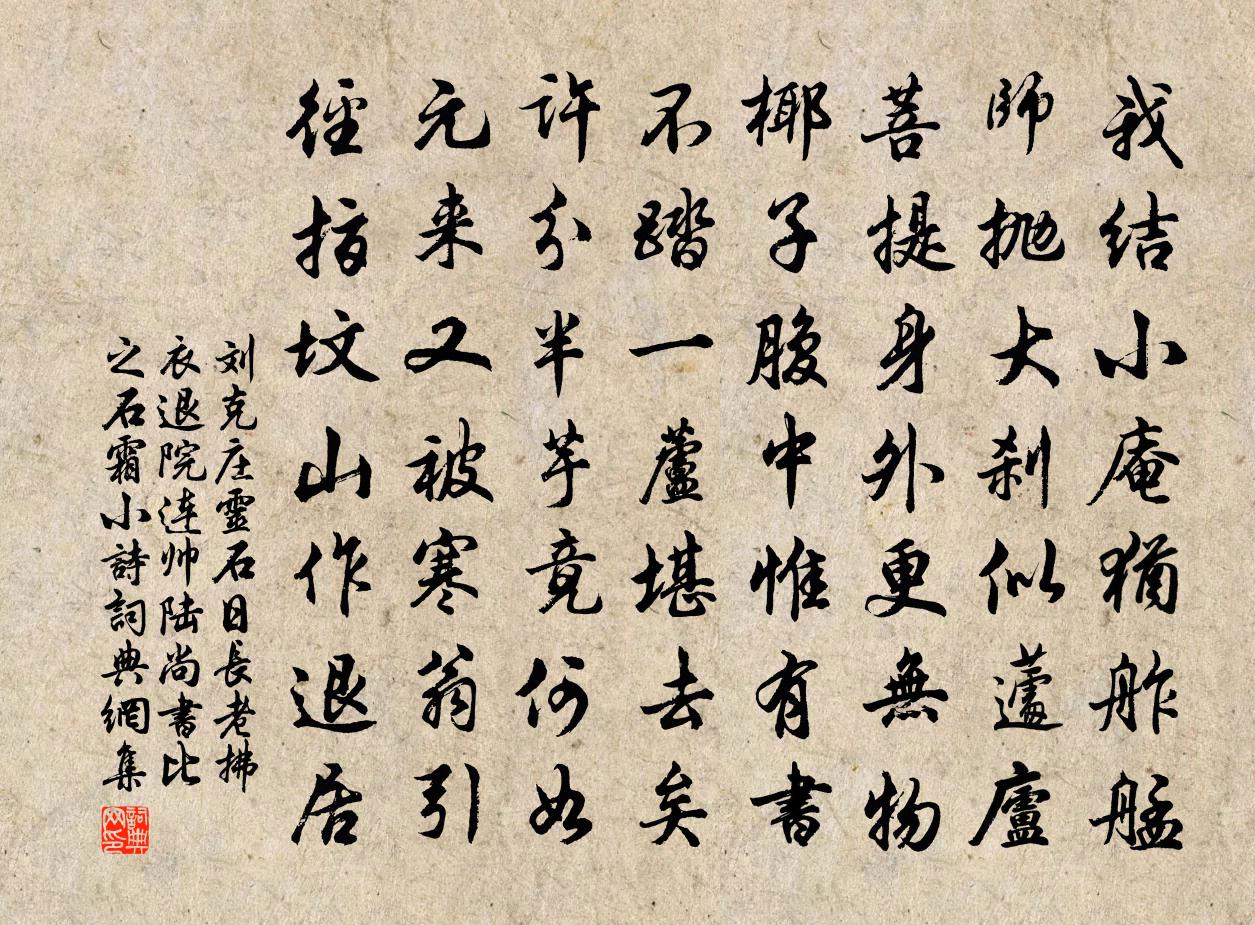 我结小庵猶舴艋
師抛大刹似蘧廬
菩提身外更無物
椰子腹中惟有書
不踏一蘆堪去矣
許分半芋竟何如
元来又被寒翁引
徑指坟山作退居
刘克庄靈石日長老拂
衣退院连帅陆尚書比
之石霜小詩詞典網集
詞典网印